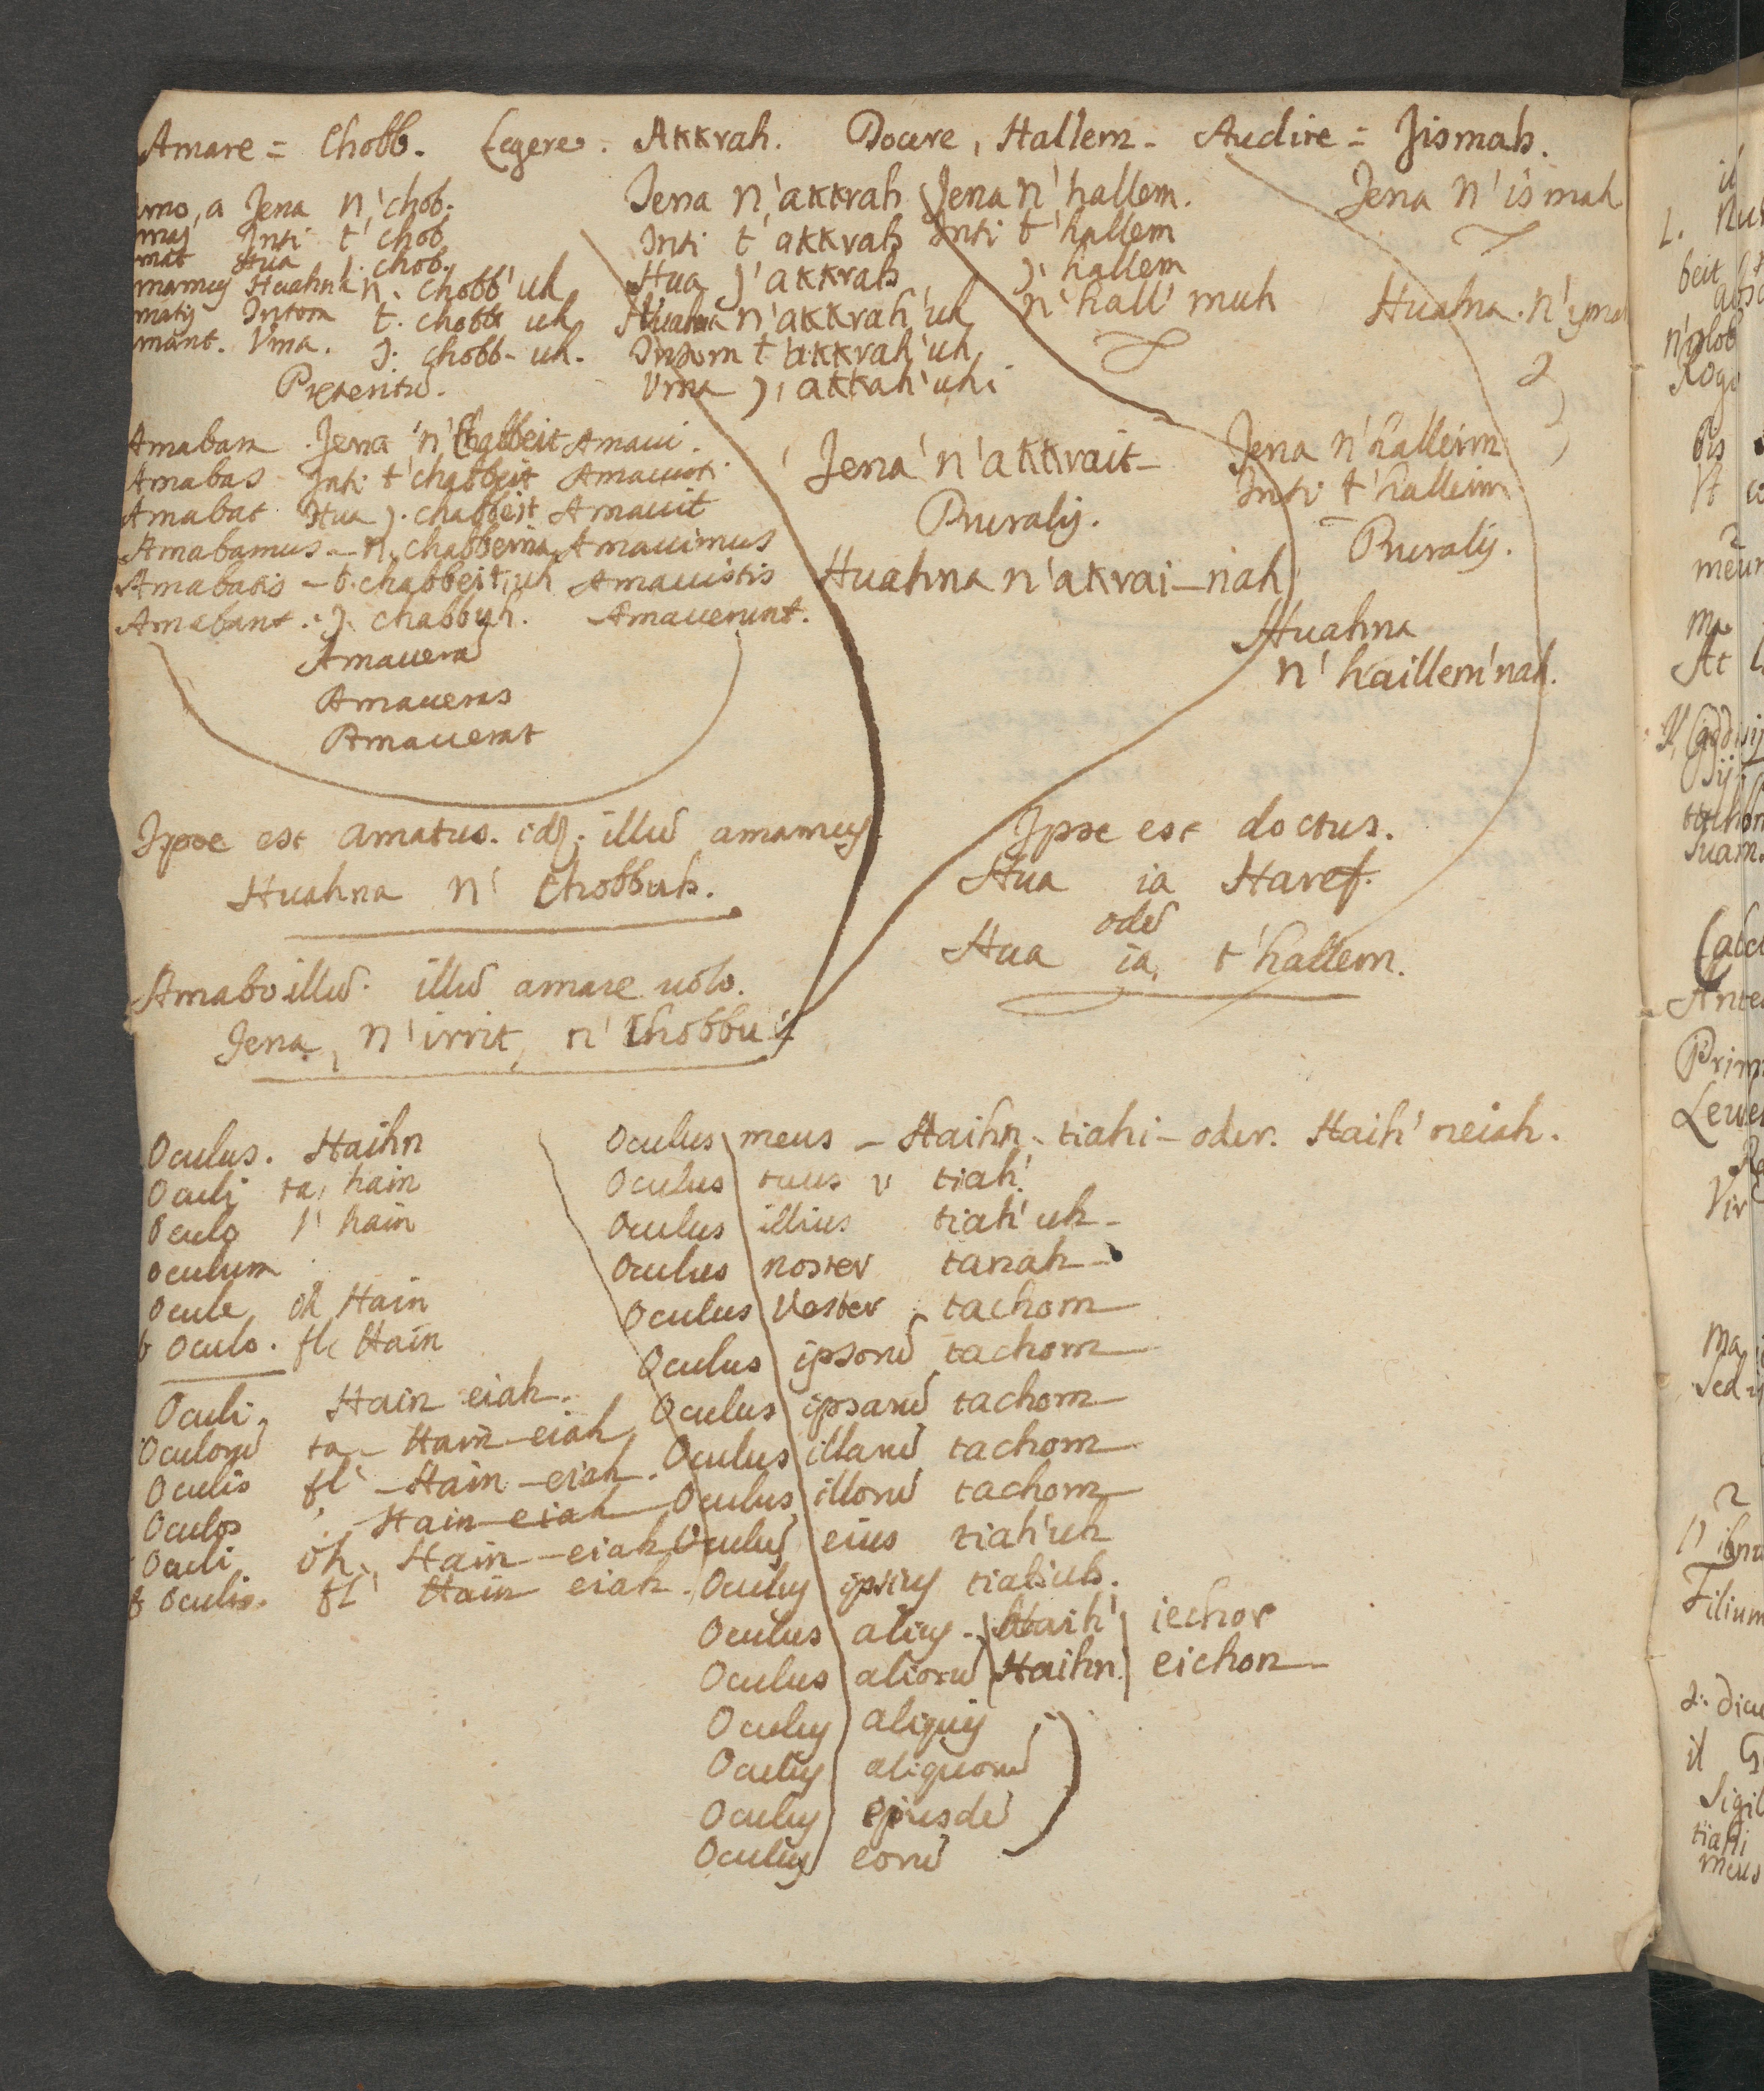 Amare = Chobb. Legere. Akkrah. Docere, Hallem - Audire = Jismah.
Amo, a Jena n'chob. Jena n'akkrah Jena n'hallem. Jena n'ismah
mas Inti t'chob Inti t'akkrah Inti t'hallem
mat Hua j. chob. Hua j'akkrah j'hallem
mamus Huahna n. chobb'uh Huahna n'akkrah'uh n'hall'muh Huahna. n'isma
matis Intom t. chobb uh Intom t'akkrah'uh
mant. Vma. j. chobb-uh. Vma j'akkah'uh
Preteritū.
Amabam. Jena n'Chabbeit Amaui.
Amabas Inti t'chabbeit Amauisti
Amabat Hua j. chabbeit Amauit
Amabamus - n. chabbeina Amauimus
Amabatis - t. chabbeit,uh Amauistis
Amabant. j. chabbuh. Amauerunt.
Amauerā
Amaueras
Amauerat
Jena n'akkrait - Jena n'halleim
Inti t'halleim
Pluralis. Pluralis.
Huahna n'akrai-nah
Huahna
n'haillem'nah.
Ipse est amatus. idq. illū amamus
Huahna n' Chobbuh.
Ipse est doctus.
Hua ia Haref.
oder
Hua ia, t'hallem.
Amabo illū. illū amare uolo.
Jena, n'irrit, n'Chobbu'
Oculus. Haihn Oculus meus - Haihn - tiahi - oder. Haih'neiah.
Oculi ta, hain Oculus tuus tiah'
Oculo l'hain Oculus illius tiah'uh -
Oculum Oculus noster tanah -
Ocule oh Hain Oculus Vester tachom
Oculo. fl Hain Oculus ipsorū tachom
Oculi. Hain eiah. Oculus ipsarū tachom
Oculorū ta - Hain - eiah Oculus illarū tachom
Oculis fl' - Hain - eiah. Oculus illorū tachom
Oculos Hain eiah Oculus eius tiah'uh
Oculi. oh, Hain - eiah Oculus ipsius tiah'uh.
Oculis. fl' Hain eiah.
Oculus alius - Haih' iechor
Oculus aliorū Haihn. eichon
Oculus aliquis
Oculus aliquorū
Oculus ejusdē
Oculus eorū